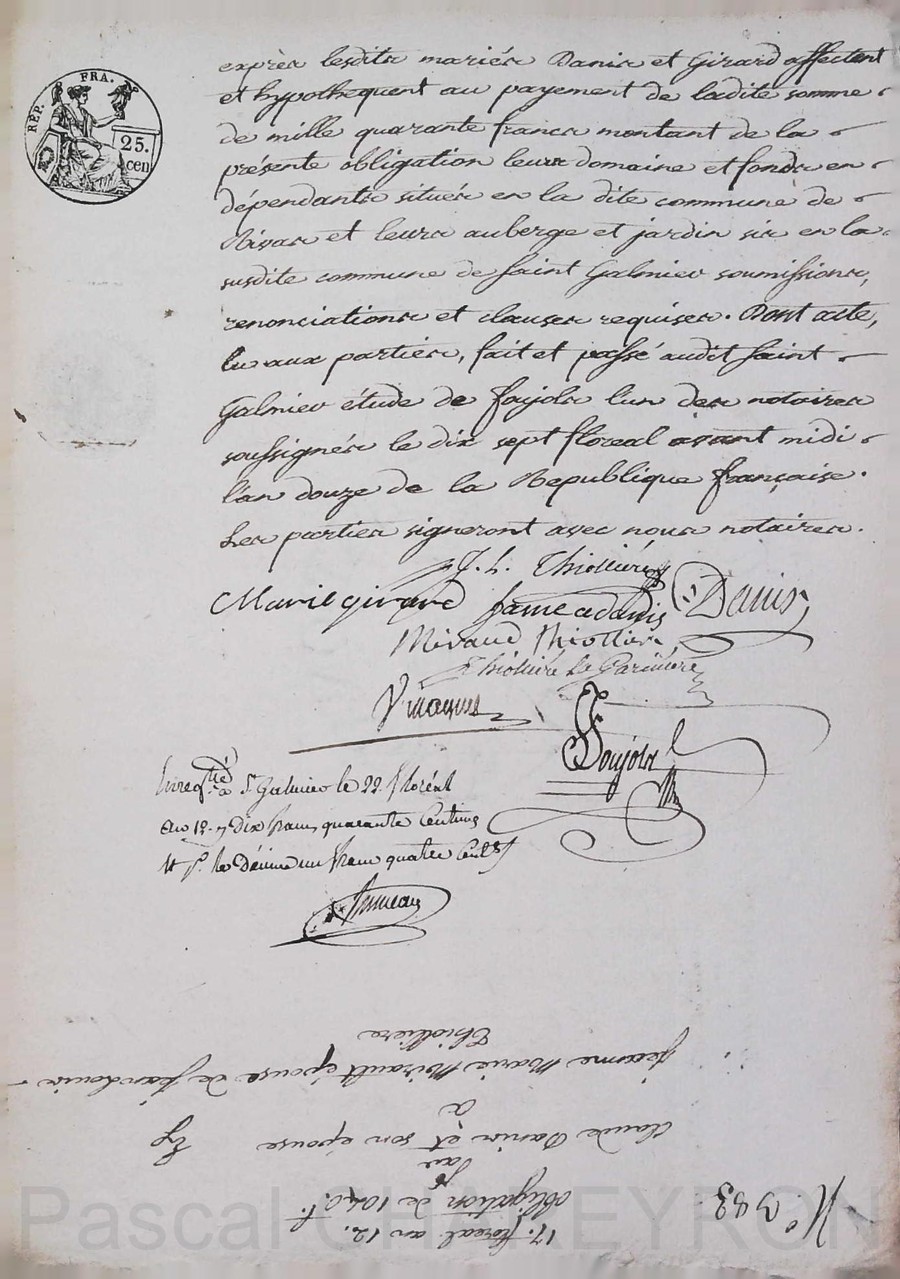 RÉP. FRA.
25.
cen
exprès lesdits mariés Danis et Girard affectent
et hypothequent au payement de ladite somme
de mille quarante francs montant de la
présente obligation leurs domaine et fonds en
dépendants situés en la dite commune de
Rivas et leurs auberge et jardin sis en la
susdite commune de Saint Galmier soumissions,
renonciations et clauses requises. Dont acte,
lu aux parties, fait et passé audit Saint
Galmier étude de Foujols l'un des notaires
soussignés le dix sept floreal avant midi
l'an douze de la Republique française.
Les parties signeront avec nous notaires.
J. L. Thiolliere
Marie girard Danis
Thiollier
Thioliere La
Foujols
Enregtré à St Galmier le 22 floréal
an 12. dix francs quarante Centimes
et pr. le Décime un franc quatre Cents
N°. 383
17. floreal an 12.
obligation de 1040. f.
Par
Claude Danis et son épouse
à
Jeanne Marie Mirault épouse de Jean Louis
Thiolliere
Pascal CHAREYRON